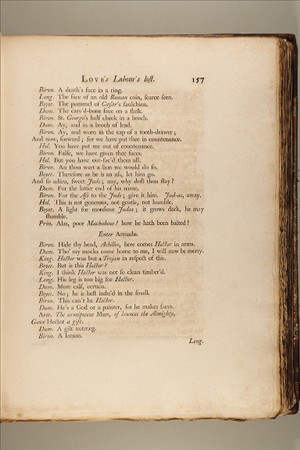 LOVE's Labour's lost. 157
Biron. A death's face in a ring.
Long. The face of an old Roman coin, scarce seen.
Boyet. The pummel of Cæsar's faulchion.
Dum. The carv'd-bone face on a flask.
Biron. St. George's half cheek in a broch.
Dum. Ay, and in a broch of lead.
Biron. Ay, and worn in the cap of a tooth-drawer;
And now, forward; for we have put thee in countenance.
Hol. You have put me out of countenance.
Biron. False, we have given thee faces.
Hol. But you have out-fac'd them all.
Biron. An thou wert a lion we would do so.
Boyet. Therefore as he is an ass, let him go.
And so adieu, sweet Jude; nay, why dost thou stay?
Dum. For the latter end of his name.
Biron. For the Ass to the Jude; give it him. Jud-as, away.
Hol. This is not generous, not gentle, not humble.
Boyet. A light for monsieur Judas; it grows dark, he may
stumble.
Prin. Alas, poor Machabeus! how he hath been baited!
Enter Armado.
Biron. Hide thy head, Achilles, here comes Hector in arms.
Dum. Tho' my mocks come home to me, I will now be merry.
King. Hector was but a Trojan in respect of this.
Boyet. But is this Hector?
King. I think Hector was not so clean timber'd.
Long. His leg is too big for Hector.
Dum. More calf, certain.
Boyet. No; he is best indu'd in the small.
Biron. This can't be Hector.
Dum. He's a God or a painter, for he makes faces.
Arm. The armipotent Mars, of launces the Almighty,
Gave Hector a gift.
Dum. A gilt nutmeg.
Biron. A lemon.
Long.